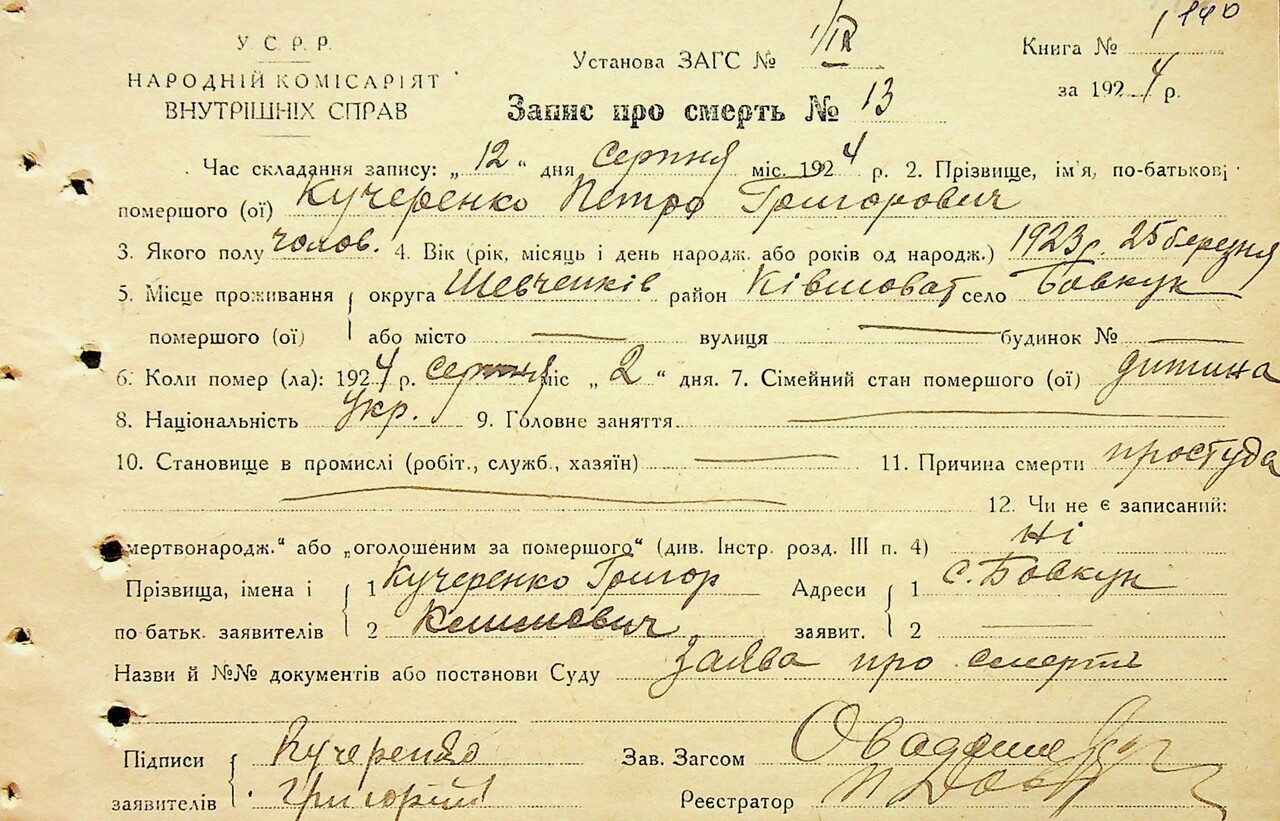 140
У С Р Р.
НАРОДНІЙ КОМІСАРІЯТ
ВНУТРІШНІХ СПРАВ
Установа ЗАГС №
Книга № 1
за 1924 р.
Запис про смерть № 13
Час складання запису: „12" дня серпня міс. 1924 р. 2. Прізвище, ім'я, по-батькові
помершого (ої) Кучеренко Петро Григорович
3. Якого полу чолов. 4. Вік (рік, місяць і день народж. або років од народж.) 1923 р. 25 березня
5. Місце проживання округа Шевченків район Ківшоват село Бовкун
помершого (ої) або місто — вулиця — будинок № —
6. Коли помер (ла): 1924 р. серпня міс „2" дня. 7. Сімейний стан помершого (ої) дитина
8. Національність Укр. 9. Головне заняття —
10. Становище в промислі (робіт., служб., хазяїн) — 11. Причина смерти простуда
12. Чи не є записаний:
мертвонародж." або „оголошеним за помершого" (див. Інстр. розд. III п. 4) Ні
Прізвища, імена і 1 Кучеренко Григор Адреси 1 с. Бовкун
по батьк. заявителів 2 заявит. 2 —
Назви й №№ документів або постанови Суду Заява про смерть
Підписи Кучеренко Зав. Загсом
заявителів Григорий Реєстратор